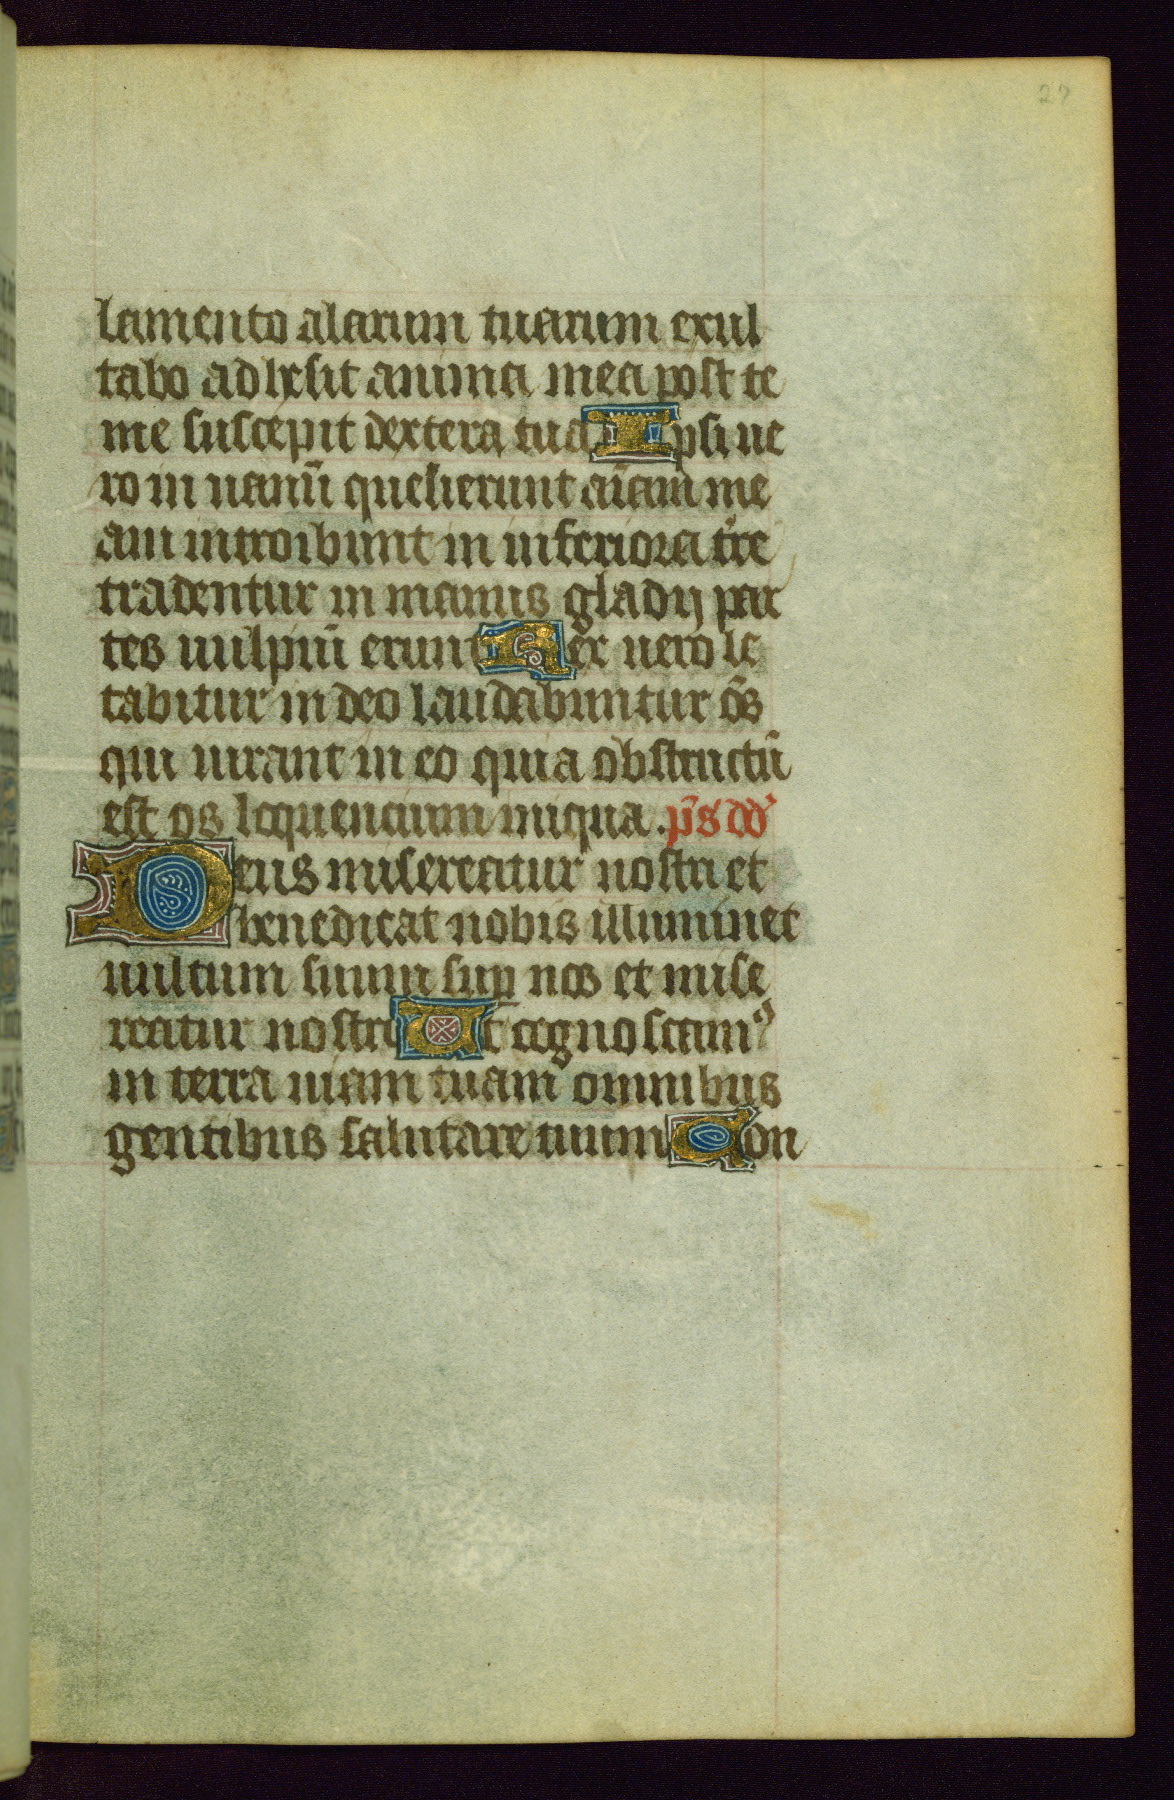 27
lamento alarum tuarum exul
tabo adhesit anima mea post te
me suscepit dextera tua Ipsi ue
ro in uanū quesierunt aīam me
am introibunt in inferiora tr̄e
tradentur in manus gladij par
tes uulpiū erunt Rex uero le
tabitur in deo laudabuntur om̄s
qui iurant in eo quia obstructū
est os loquencium iniqua. ps̄ dd̄
Deus misereatur nostri et
benedicat nobis illuminet
uultum suum sup̄ nos et mise
reatur nostri Ut cognoscamꝰ
in terra uiam tuam omnibus
gentibus salutare tuum Con